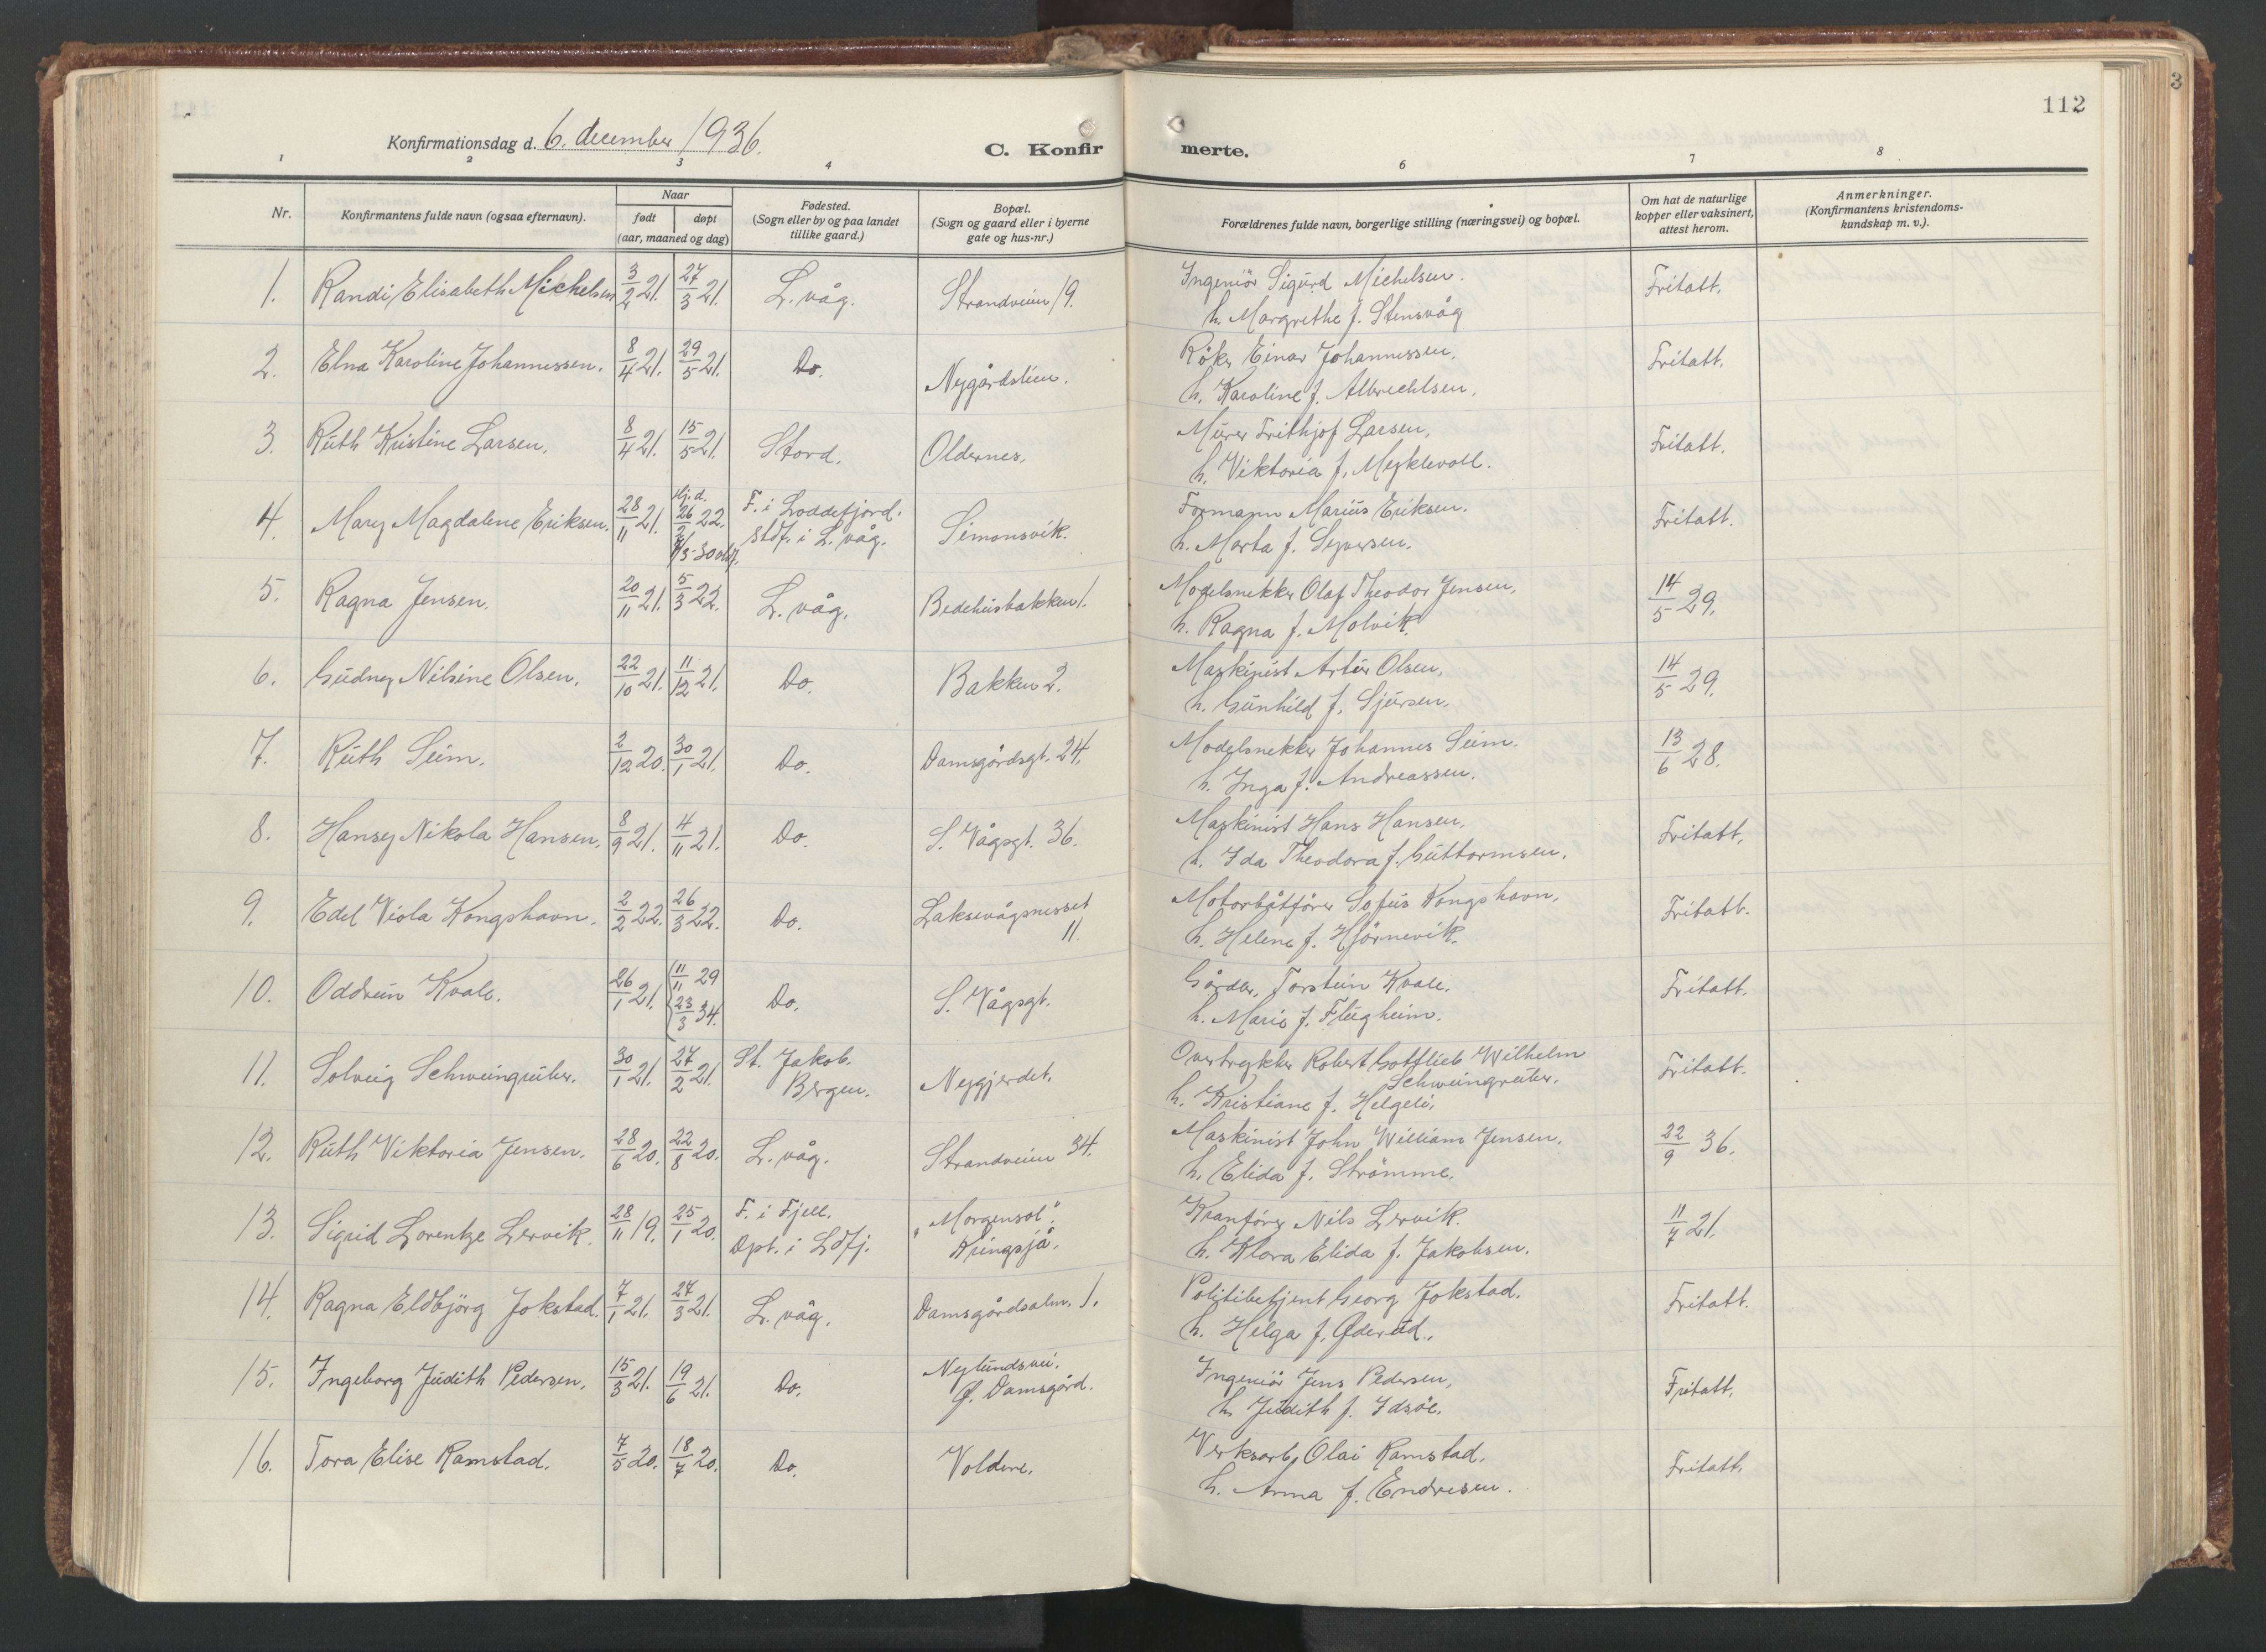 112
3
Konfirmationsdag d. 6. december 1936.
C. Konfirmerte.
1 2 3 4 6 7 8
Nr.
Konfirmantens fulde navn (ogsaa efternavn).
Naar
født
døpt
(aar, maaned og dag)
Fødested.
(Sogn eller by og paa landet
tillike gaard.)
Bopæl.
(Sogn og gaard eller i byerne
gate og hus-nr.)
Forældrenes fulde navn, borgerlige stilling (næringsvei) og bopæl.
Om hat de naturlige
kopper eller vaksinert,
attest herom.
Anmerkninger.
(Konfirmantens kristendoms-
kundskap m. v.).
1. Randi Elisabeth Michelsen 3/2 21. 27/3 21. L. våg. Strandveien 19. Ingeniör Sigurd Michelsen. Fritatt.
h. Margrethe f. Stensvåg
2. Elna Karoline Johannessen. 8/4 21. 29/5 21. Do. Nygårdslien. Röker Einar Johannessen, Fritatt.
h. Karoline f. Albrechtsen,
3. Ruth Kristine Larsen. 8/4 21. 15/5 21. Stord. Oldernes, Murer Frithjof Larsen, Fritatt.
h. Viktoria f. Myklevoll.
4. Mary Magdalene Eriksen. 28/11 21. Hj. d. 26/2 22. F. i Loddefjord. Simonsvik. Formann Marius Eriksen. Fritatt.
stdf. i L. våg. h. Marta f. Syversen.
5. Ragna Jensen. 20/11 21. 5/3 22. L. våg. Bedehusbakken 1. Modelsnekker Olaf Theodor Jensen, 14/5 29.
h. Ragna f. Molvik.
6. Gudny Nilsine Olsen. 22/10 21. 11/12 21. Do. Bakken 2. Maskinist Artur Olsen, 14/5 29.
h. Gunhild f. Sjursen.
7. Ruth Seim. 2/12 20. 30/1 21. Do. Damsgårdsgt. 24. Modelsnekker Johannes Seim. 13/6 28.
h. Inga f. Andreassen.
8. Hansy Nikola Hansen. 8/9 21. 4/11 21. Do. S. Vågsgt. 36. Maskinist Hans Hansen, Fritatt.
h. Ida Theodora f. Guttormsen.
9. Edel Viola Kongshavn. 2/2 22. 26/3 22. Do. Laksevågsnesset 11. Motorbåtförer Sofus Kongshavn, Fritatt.
h. Helene f. Hjörnevik.
10. Oddrun Kvale. 26/1 21. { 11/11 29 23/3 34. Do. S. Vågsgt. Gårdbr. Torstein Kvale. Fritatt.
h. Marie f. Flugheim.
11. Solveig Schweingruber. 30/1 21. 27/2 21. St. Jakob. Bergen. Nygjerdet. Overtrykker Robert Gottlieb Wilhelm Schweingruber. Fritatt.
h. Kristiane f. Helgeli,
12. Ruth Viktoria Jensen. 28/6 20. 22/8 20. L. våg. Strandveien 34. Maskinist John William Jensen. 22/9 36.
h. Elida f. Strömme.
13. Sigrid Lorentze Lervik. 28/11 19. 25/1 20. F. i Fjell. "Morgensol". Kranförer Nils Lervik. 11/7 21.
Dpt. i Ldfj. Kringsjå. h. Klara Elida f. Jakobsen.
14. Ragna Eldbjörg Jokstad. 7/1 21. 27/3 21. L. våg. Damsgårdsalm. 1. Politibetjent Georg Jokstad. Fritatt.
h. Helga f. Øderud.
15. Ingeborg Judith Pedersen. 15/3 21. 19/6 21. Do. Nylundsvei. Ø. Damsgård. Ingeniör Jens Pedersen, Fritatt.
h. Judith f. Idsöe.
16. Tora Elise Ramstad. 7/5 20. 18/7 20. Do. Voldene. Verksarb. Olai Ramstad. Fritatt.
h. Anna f. Endresen.